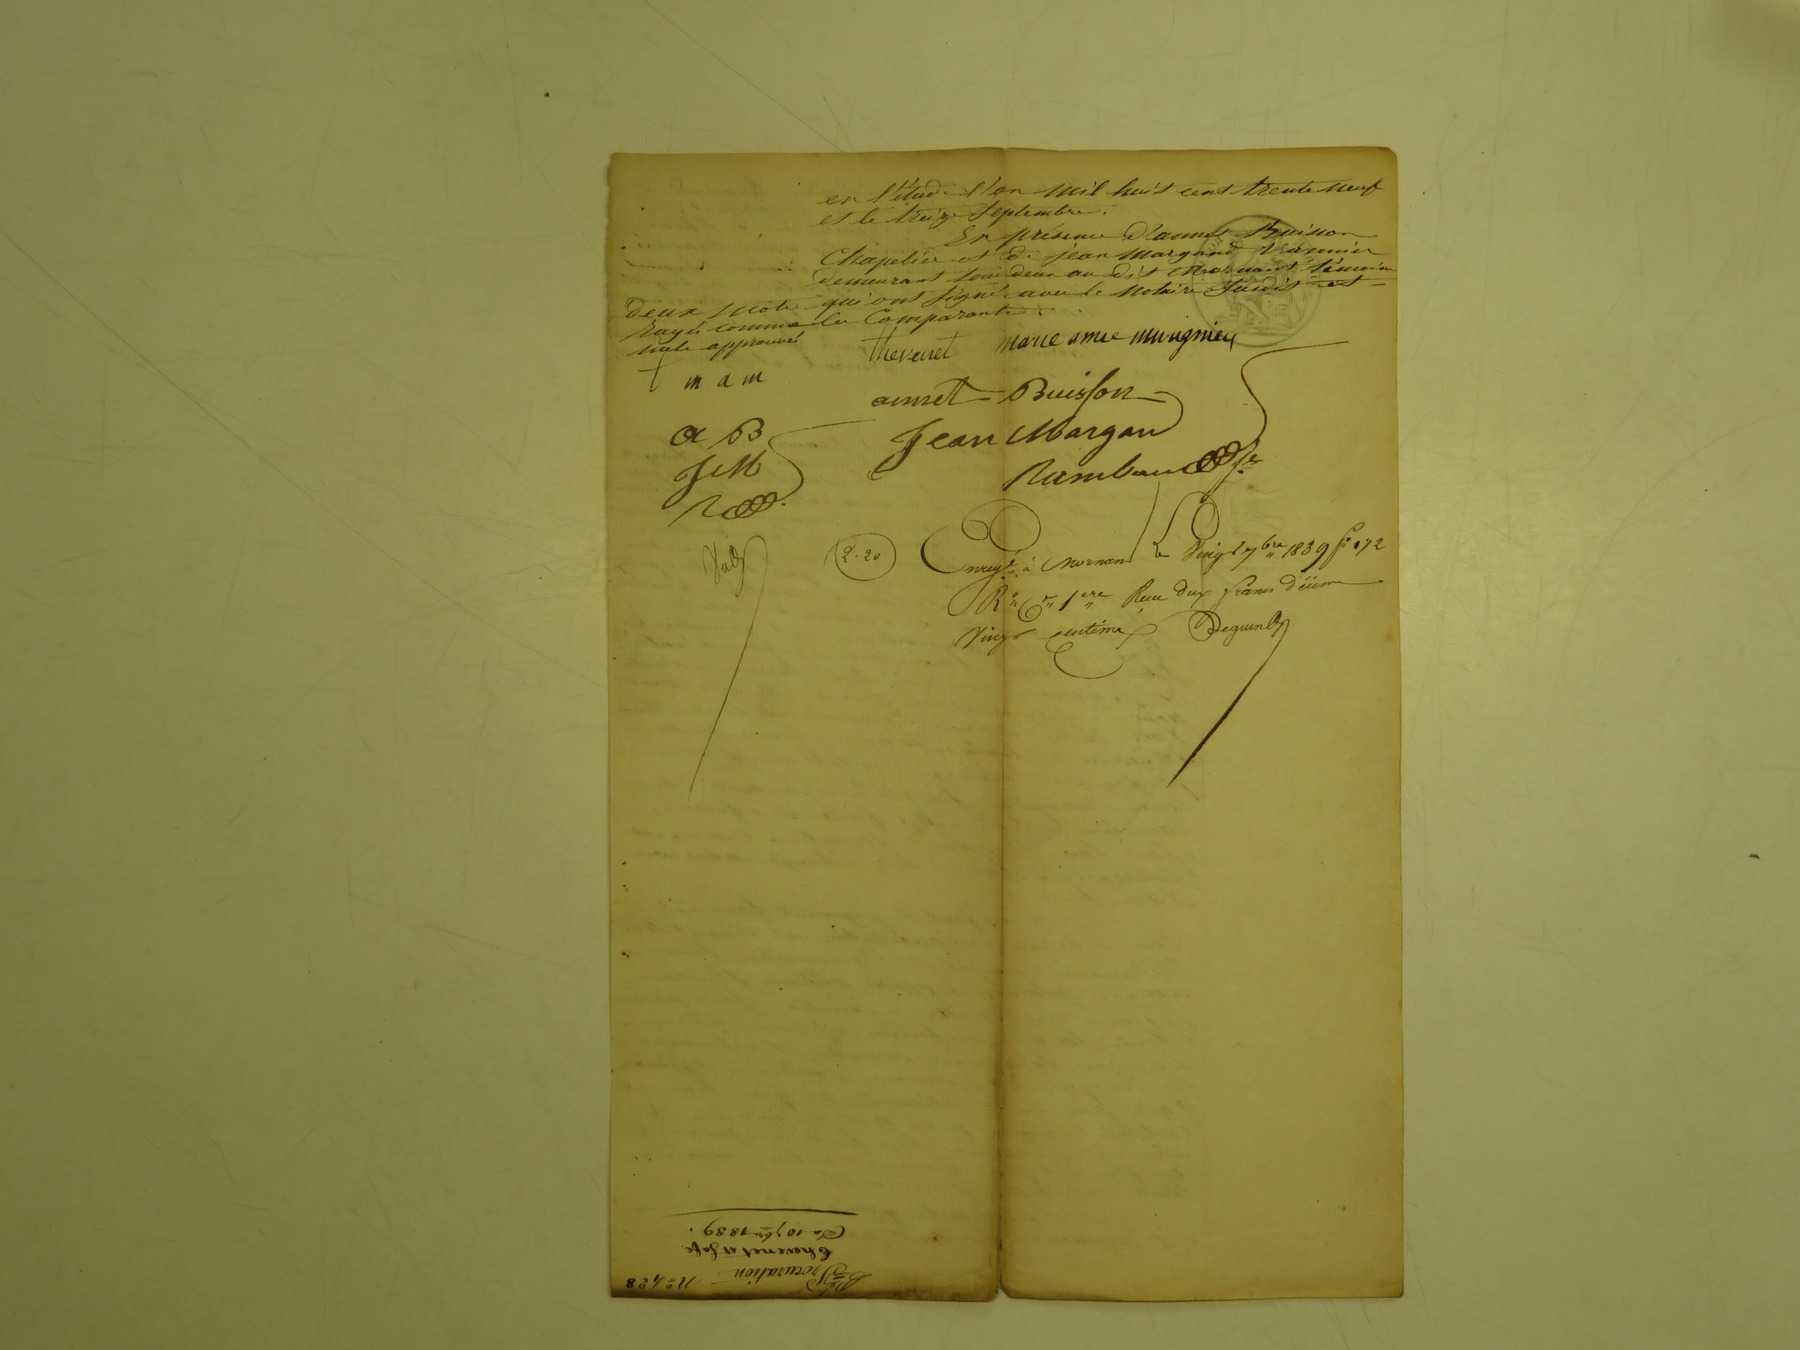 en l'étude l'an mil huit cent trente neuf
et le treize Septembre.
En présence d'annet Buisson
Chapelier et de Jean Margand Vannier
demeurant tous deux au dit Mornant témoins
qui ont signé avec le Notaire Susdit et
les Comparants.
deux mots
rayés comme
nuls approuvés
t m a m
a B
J M
R
thevenet marie amee
annet Buisson
Jean Margan
Rambau
2.20
Enregé à Mornant Le Vingt 7bre 1839 fo 172
Ro Co 1ere Reçu deux francs décime
Vingt centimes
No 428
Procuration
thevenet et Safe
Du 10 7bre 1839.